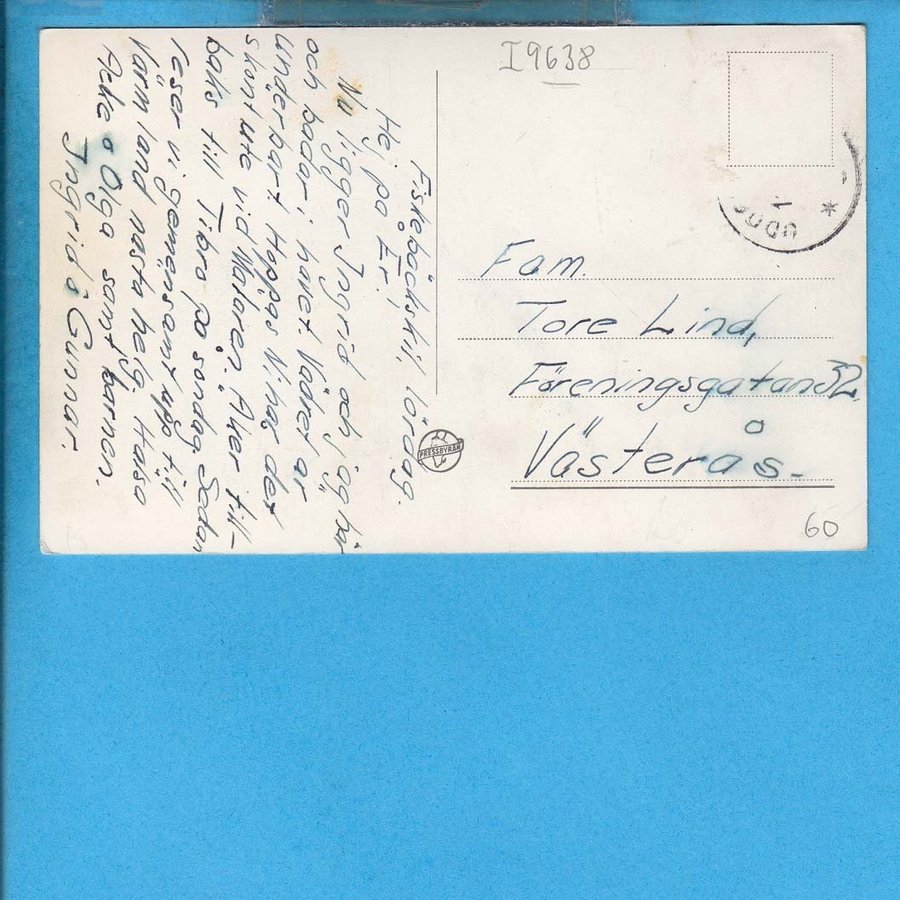 I9638
Fiskebäckskil, lördag.
Hej på Er!
Nu ligger Ingrid och jag här
och badar i havet Vädret är
underbart Hoppas Ni har det
skönt ute vid Mälaren. Åker till-
baks till Tibro på söndag. Sedan
reser vi gemensamt upp till
Värmland nästa helg. Hälsa
Acke o Olga samt barnen.
Ingrid o Gunnar.
PRESSBYRÅN
UDDE
Fam.
Tore Lind,
Föreningsgatan 32
Västerås.
60